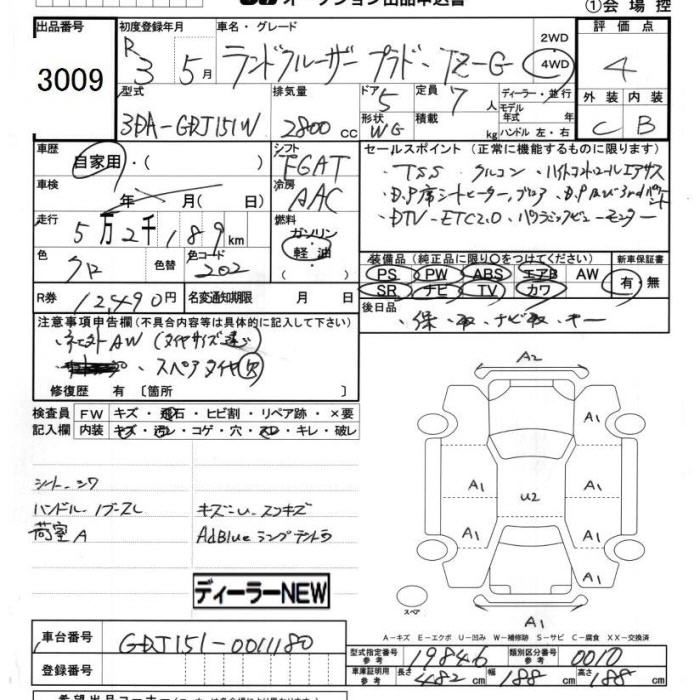 オークション出品申込書 ①会場控
出品番号 3009
初度登録年月 R3 5月
車名・グレード ランドクルーザー プラド TZ-G
2WD 4WD
評価点 4
型式 3DA-GDJ151W
排気量 2800cc
ドア 5 形状 WG
定員 7人 積載 kg
ディーラー・並行
モデル年式 年式
ハンドル 左・右
外装 C 内装 B
車歴 自家用・( )
シフト FGAT
セールスポイント (正常に機能するものに限ります)
・TSS ・クルコン
車検 年 月(日)
冷房 AAC
走行 5万2千189km
燃料 ガソリン・軽油・( )
・DTV・ETC2.0
色 クロ 色替 色コード 202
装備品 (純正品に限り○をつけてください)
PS PW ABS エアB AW
SR ナビ TV カワ
新車保証書 有・無
R券 12,490円 名変通知期限 月 日
後日品 ・保・取・ナビ取・キー
注意事項申告欄 (不具合内容等は具体的に記入して下さい)
AW (タイヤサイズ違い)
・スペアタイヤ欠
修復歴 有 〔箇所 〕
検査員記入欄
FW キズ・飛石・ヒビ割・リペア跡・×要
内装 キズ・汚レ・コゲ・穴・スレ・キレ・破レ
シート シワ
ハンドル
荷室A
キズ・U・スリキズ
AdBlueランプテントウ
ディーラーNEW
A2
A1
A1 A1
U2
A1 A1
A1
スペア
A1
A-キズ E-エクボ U-凹み W-補修跡 S-サビ C-腐食 XX-交換済
車台番号 GDJ151-0011180
登録番号
型式指定番号 参考 19846 類別区分番号 参考 0010
車庫証明用 参考 長さ 482cm 幅 188cm 高さ 188cm